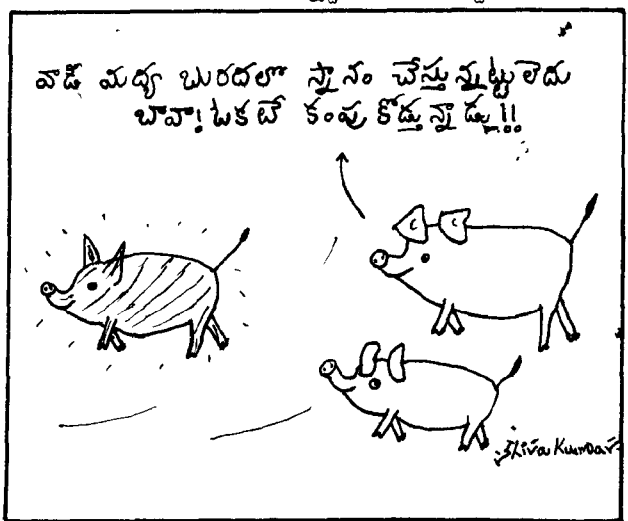 వాడీ మధ్య బురదలో స్నానం చేస్తున్నట్టులేదు
బావా! ఒకటే కంపు కోడ్తున్నాడు!!
Shiva Kumar